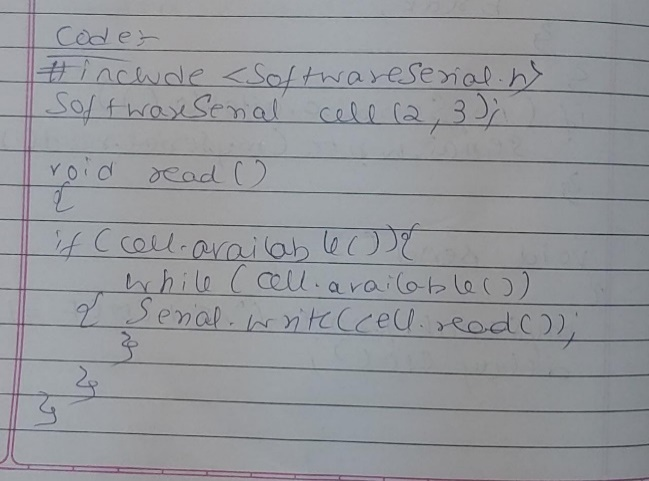 Code:-
#include <SoftwareSerial.h>
SoftwareSerial cell(2,3);
void read()
{
if(cell.available()){
while(cell.available())
{ Serial.write(cell.read());
}
}
}